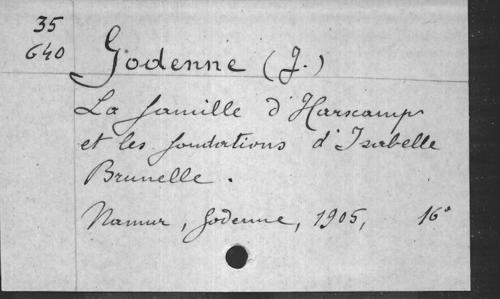 35
640
Godenne (J.)
La famille d'Harscamp
et les fondations d'Isabelle
Brunelle.
Namur, Godenne, 1905, 16°